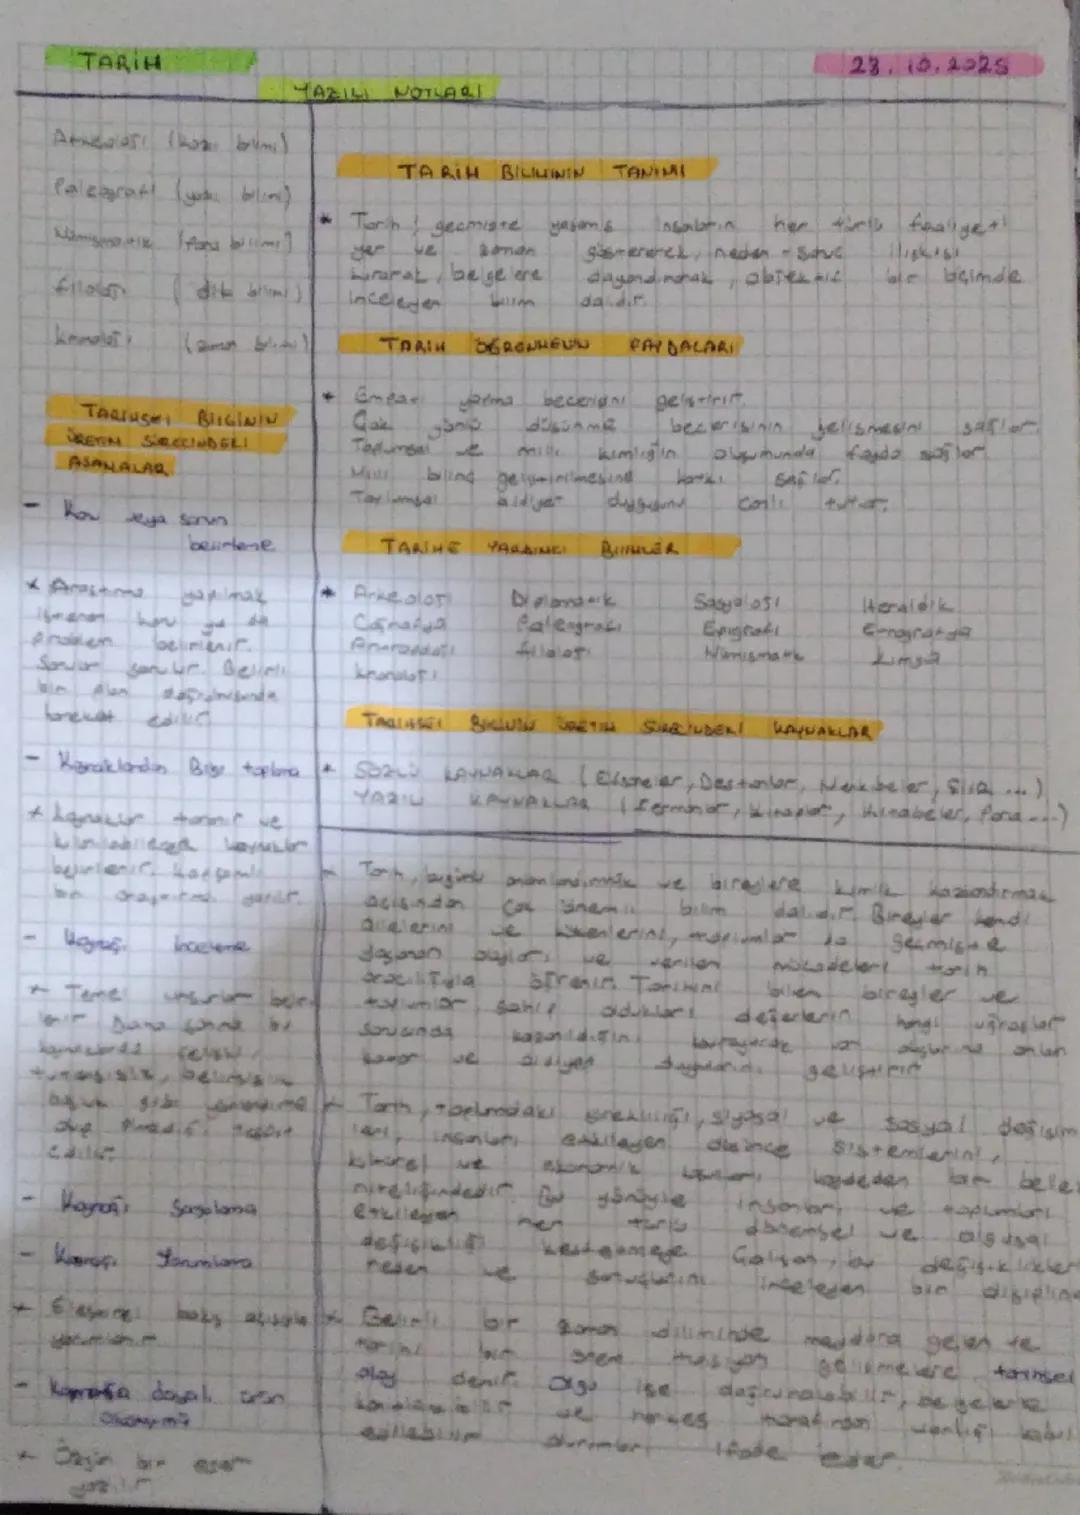 TARİH
23.10.2025
YAZILI NOTLARI
Arkeoloji (kazı bilimi)
Paleografi (yazı bilimi)
Nümismatik (Para bilimi)
filoloji (dil bilimi)
kronoloji (zaman bilimi)
TARİHSEL BİLGİNİN
ÜRETİM SÜRECİNDEKİ
AŞAMALAR
- Konu veya sorun
belirleme
* Araştırma yapılmak
istenen konu ya da
problem belirlenir.
Sorular sorulur. Belirli
bir plan doğrultusunda
hareket edilir.
- Kaynaklardan Bilgi toplama
* kaynaklar tanınır ve
kullanılabilecek kaynaklar
belirlenir. kapsamlı
bir araştırma yapılır.
- Kaynağı inceleme
* Temel unsurlar belir
lenir. Daha sonra bu
kaynaklarda çelişki,
tutarsızlık, belirsizlik
gibi
olup olmadığı tespit
edilir.
- Kaynağı Sorgulama
- Kaynağı Yorumlama
* Eleştirel bakış açısıyla
yorumlanır
- Kaynağa dayalı ürün
oluşturma
* Özgün bir eser
yazılır
TARİH BİLİMİNİN TANIMI
* Tarih; geçmişte yaşamış insanların her türlü faaliyeti
yer ve zaman göstererek, neden-sonuç ilişkisi
kurarak, belgelere dayandırarak, objektif bir biçimde
inceleyen bilim dalıdır.
TARİH ÖĞRENMENİN FAYDALARI
* Empati yapma becerisini geliştirir.
Çok yönlü düşünme becerisinin gelişmesini sağlar.
Toplumsal ve milli kimliğin oluşumunda fayda sağlar
Milli bilinç geliştirilmesine katkı sağlar.
Toplumsal aidiyet duygusunu canlı tutar.
TARİHE YARDIMCI BİLİMLER
* Arkeoloji Diplomatik Sosyoloji Heraldik
Coğrafya Paleografi Epigrafi Etnografya
Antropoloji filoloji Nümismatik Kimya
kronoloji
TARİHSEL BİLGİNİN ÜRETİM SÜRECİNDEKİ KAYNAKLAR
* SÖZLÜ KAYNAKLAR (Efsaneler, Destanlar, Menkıbeler, Şiir ...)
YAZILI KAYNAKLAR (Fermanlar, Kitaplar, Kitabeler, Para ...)
* Tarih, bugünü anlamlandırmak ve bireylere kimlik kazandırmak
açısından çok önemli bilim dalıdır. Bireyler kendi
ailelerini ve kökenlerini, toplumlar da geçmişte
yaşanan olayları ve verilen mücadeleleri tarih
aracılığıyla öğrenir. Tarihini bilen bireyler ve
toplumlar, sahip oldukları değerlerin hangi uğraşlar
sonucunda kazanıldığını
ve aidiyet duygularını geliştirir
* Tarih, toplumdaki sürekliliği, siyasal ve sosyal değişim
leri, insanları etkileyen düşünce sistemlerini,
kültürel ve ekonomik kaydeden bir belge
niteliğindedir. Bu yönüyle insanları ve toplumları
etkileyen her türlü dönemsel ve olgusal
değişikliği keşfetmeye çalışan, bu değişiklikleri
neden ve sonuçlarını inceleyen bir disiplin
* Belirli bir zaman diliminde meydana gelen ve
tarihi bir önem taşıyan gelişmelere tarihsel
olay denir. Olgu ise doğrulanabilir, belgelerle
kanıtlanabilir ve herkes tarafından varlığı kabul
edilebilir durumları ifade eder.